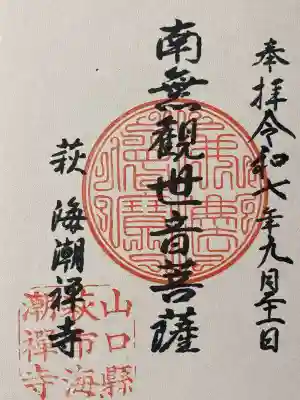 奉拝令和六年九月二十一日
南無観世音菩薩
萩 海潮禅寺
山口縣
萩市海
潮禅寺